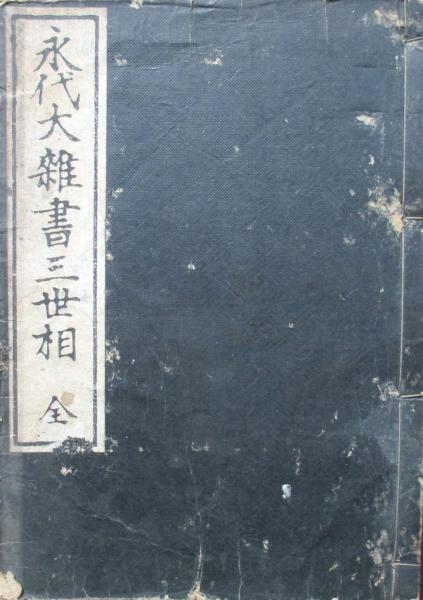 永代大雜書三世相 全